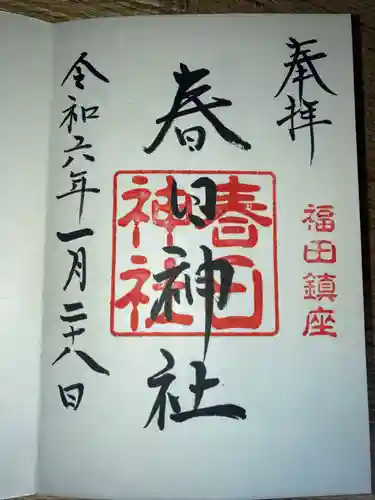 奉拝
福田鎮座
春日神社
春日
神社
令和六年一月二十八日